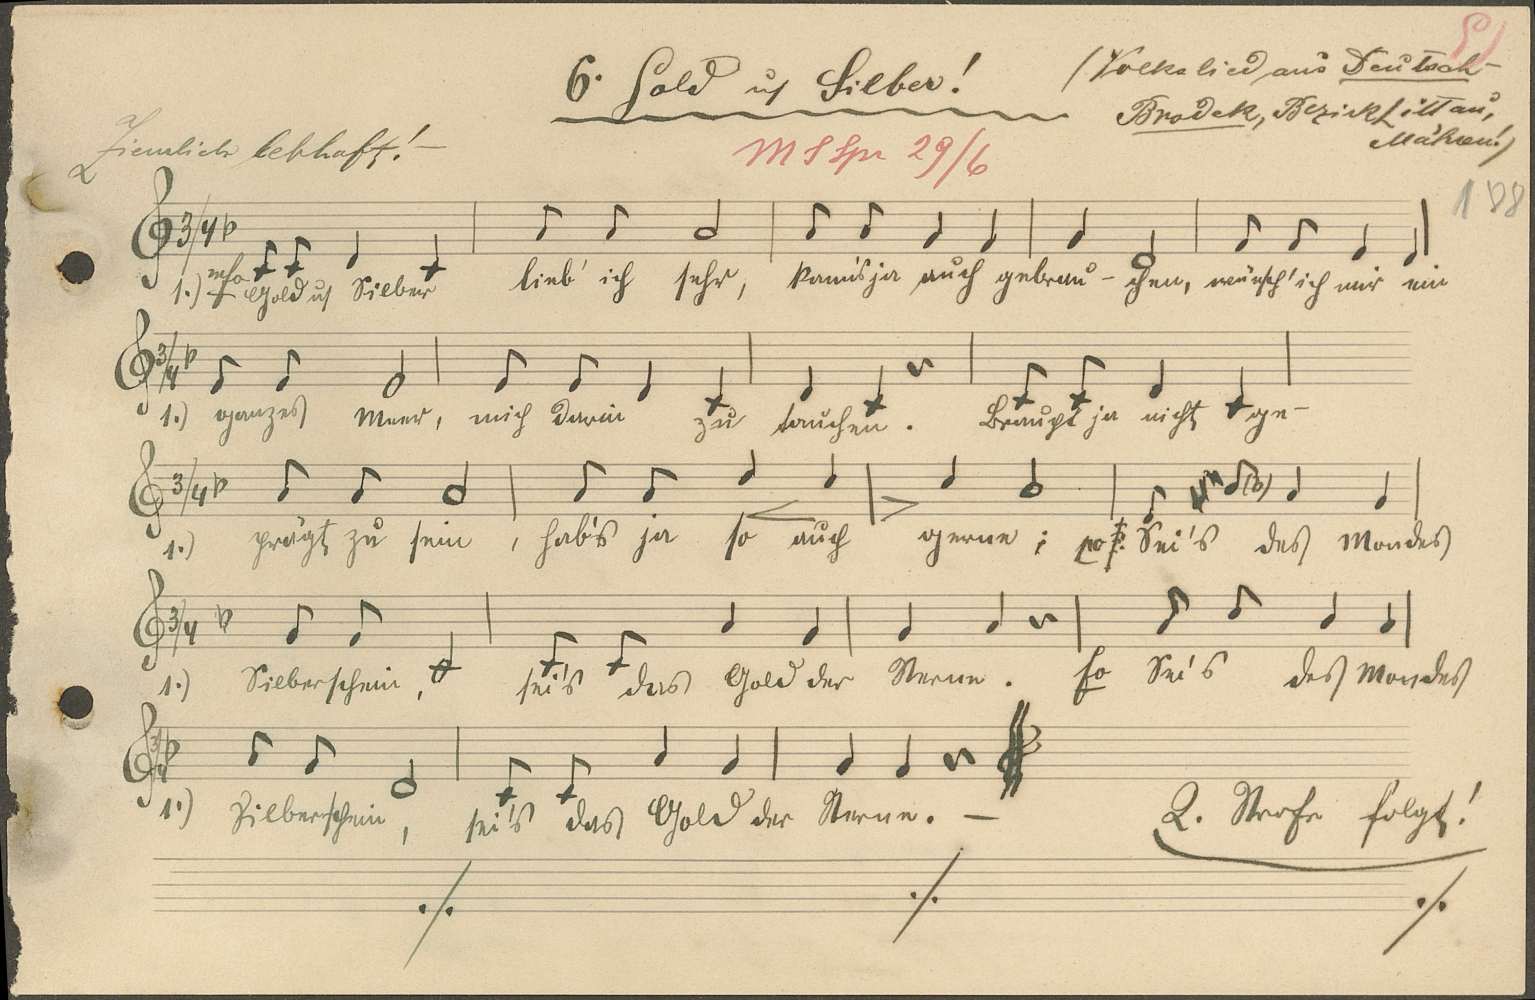 6. Gold u. Silber!
(Volkslied aus Deutsch-
Brodek, Bezirk Littau,
Mähren!)
Ziemlich lebhaft! —
29/6
188
3/4
1.) Gold u. Silber lieb' ich sehr, kann's ja auch gebrau - chen, wünsch' ich mir ein
3/4
1.) ganzes Meer, mich darin zu tauchen. Braucht ja nicht ge-
3/4
1.) prägt zu sein, hab's ja so auch gerne; Sei's des Mondes
3/4
1.) Silberschein, sei's das Gold der Sterne. So Sei's des Mondes
3/4
1.) Silberschein, sei's das Gold der Sterne. —
2. Strofe folgt!